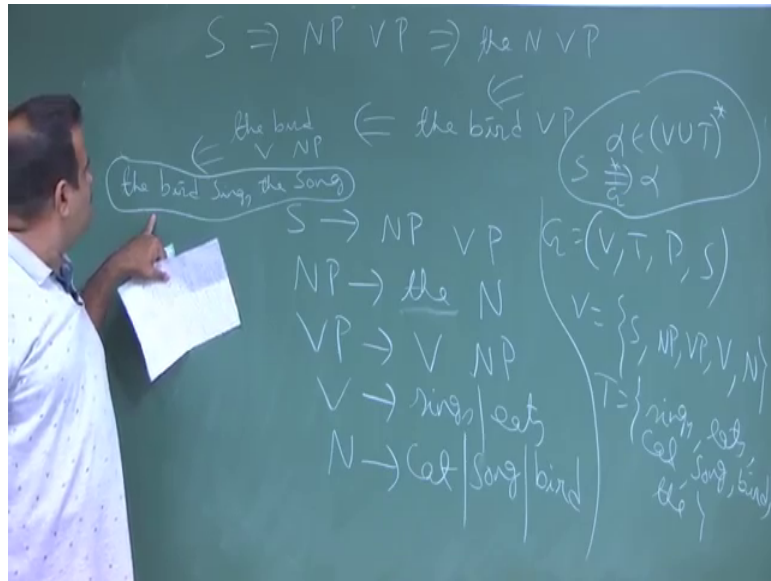 S ⇒ NP VP ⇒ the N VP
⇐
the bird V NP ⇐ the bird VP
⇐
the bird sings the song
S → NP VP
NP → the N
VP → V NP
V → sings | eats
N → Cat | Song | bird
α ∈ (V ∪ T)*
S ⇒*G α
G = (V, T, P, S)
V = {S, NP, VP, V, N}
T = {sings, eats,
Cat, song, bird,
the}